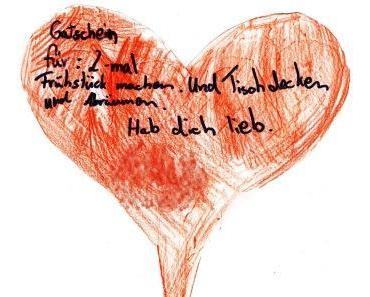 Gutschein
für: 2 mal
Frühstück machen. Und Tisch decken
und Abräumen.
Hab dich lieb.